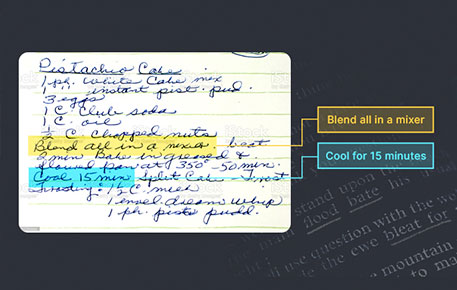 Pistachio Cake
1 ph. White Cake mix
1 " instant pist. pud.
3 eggs
1 C. Club soda
1 C. oil
1/2 C. Chopped nuts
Blend all in a mixer beat
2 min. Bake in greased &
floured pan at 350° - 50 min.
Cool 15 min. Split Cake & frost
frosting: 1 1/2 C. milk
1 envel dream whip
1 ph. pist. pudd.
Blend all in a mixer
Cool for 15 minutes
upon the
flood bate
use question with the
the ewe bleat for
mountain
to